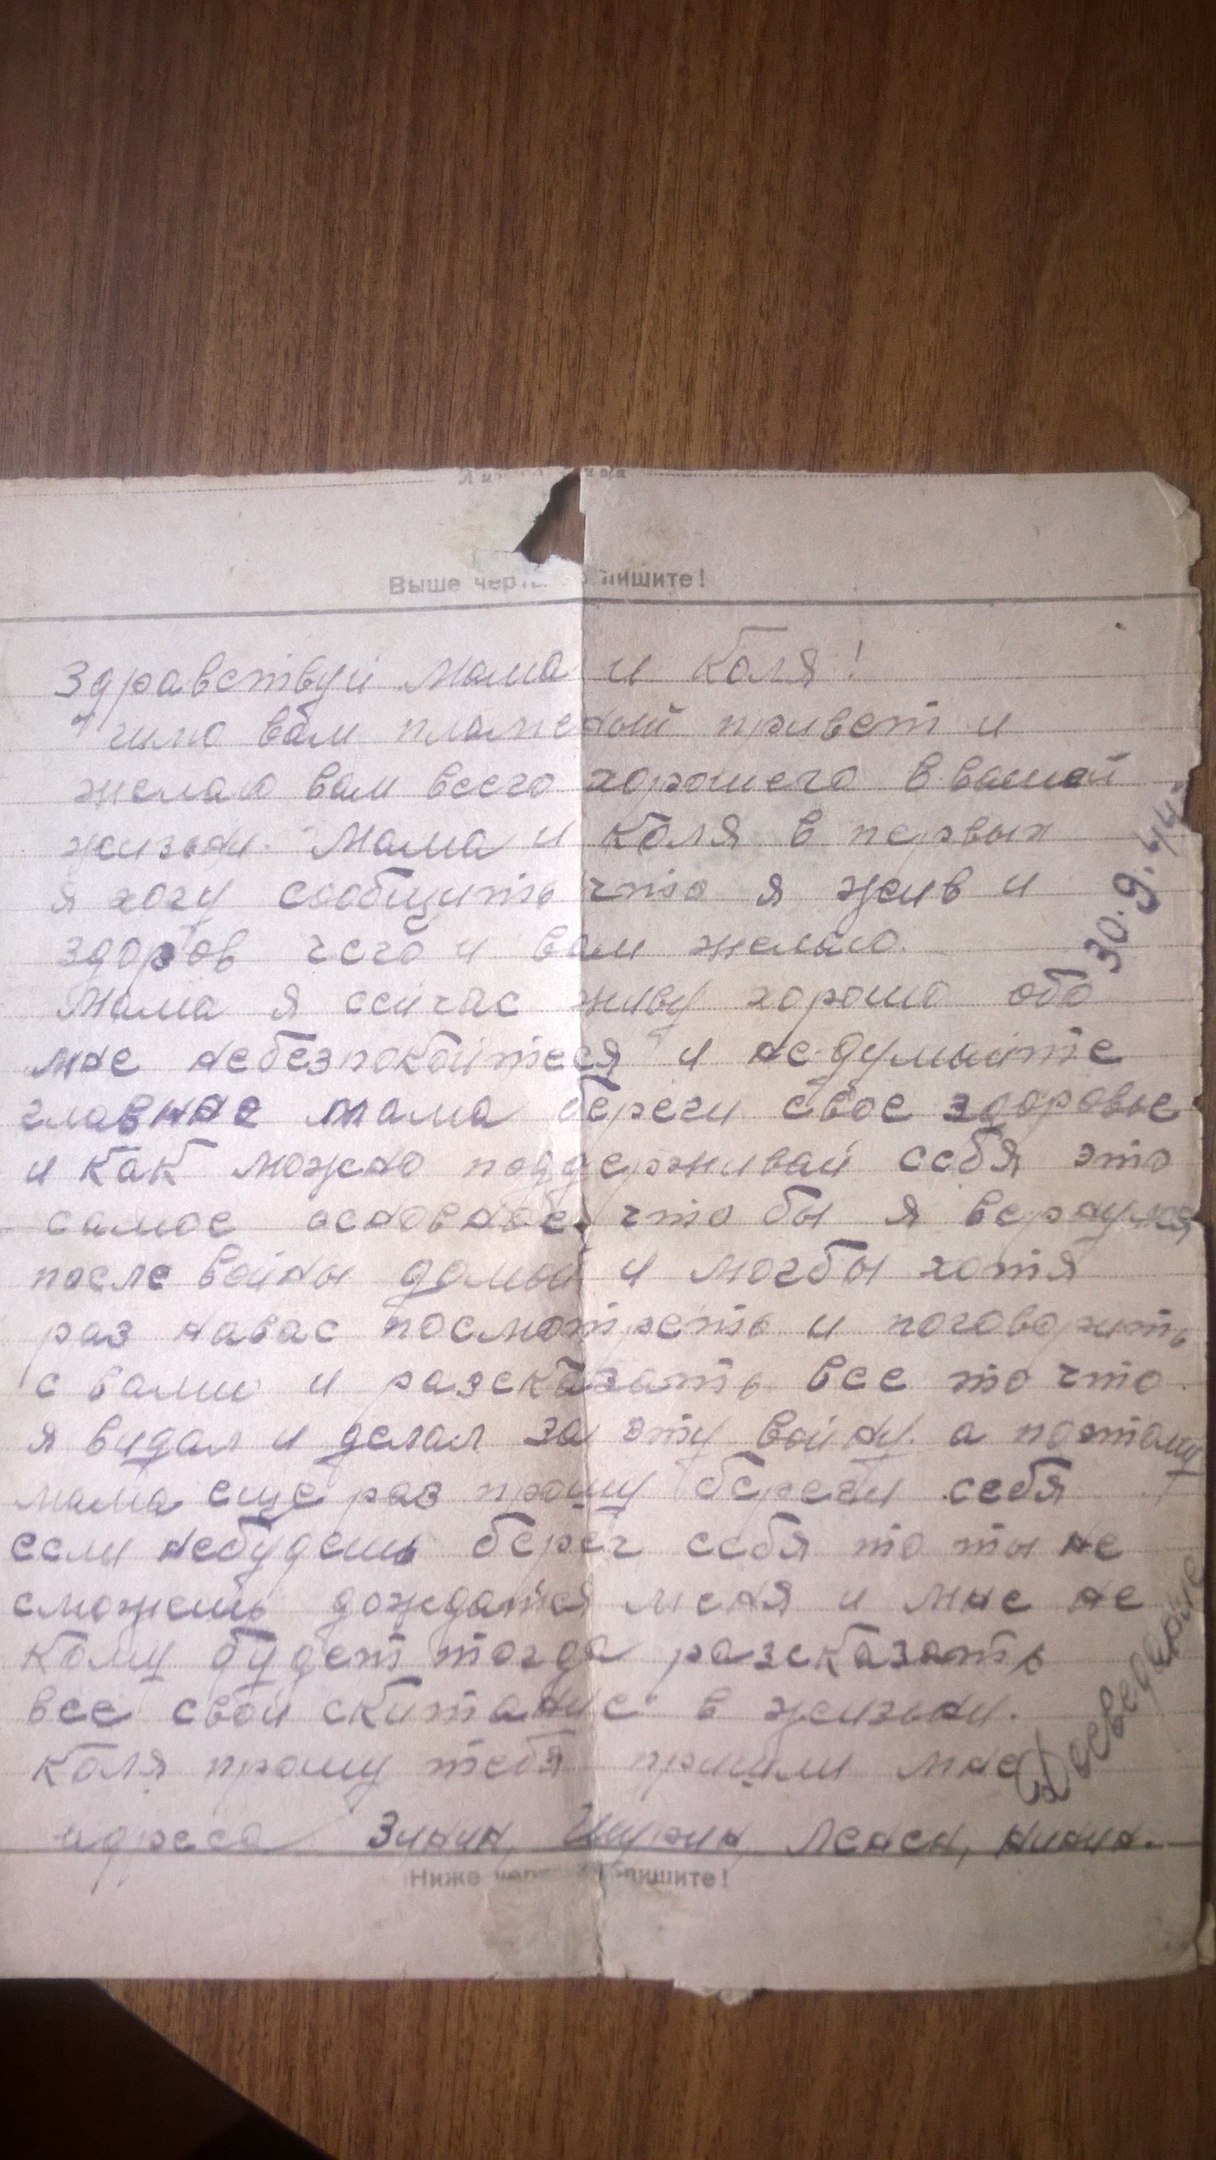 Выше черты не пишите!
Здравствуй мама и Коля!
шлю вам пламеный привет и
желаю вам всего хорошего в вашей
жизьни. Мама и Коля в первых
я хочу сообщить что я жив и
здоров чего и вам желаю.
Мама я сейчас живу хорошо обо
мне небезпокойтеся и недумайте
главное мама береги свое здоровье
и как можно поддерживай себя это
самое основное, что бы я вернулся
после войны домой и могбы хотя
раз навас посмотреть и поговорить
с вами и разсказать все то что
я видал и делал за эту войну. а поэтому
мама еще раз прошу береги себя
если небудешь берег себя то ты не
сможешь дождатся меня и мне не
кому будет тогда разсказать
все свои скитание в жизьни.
Коля прошу тебя пришли мне
адреса Зинин, Шурин, Ленен, нинин.
Ниже черты не пишите!
30.9.44.
Досведание